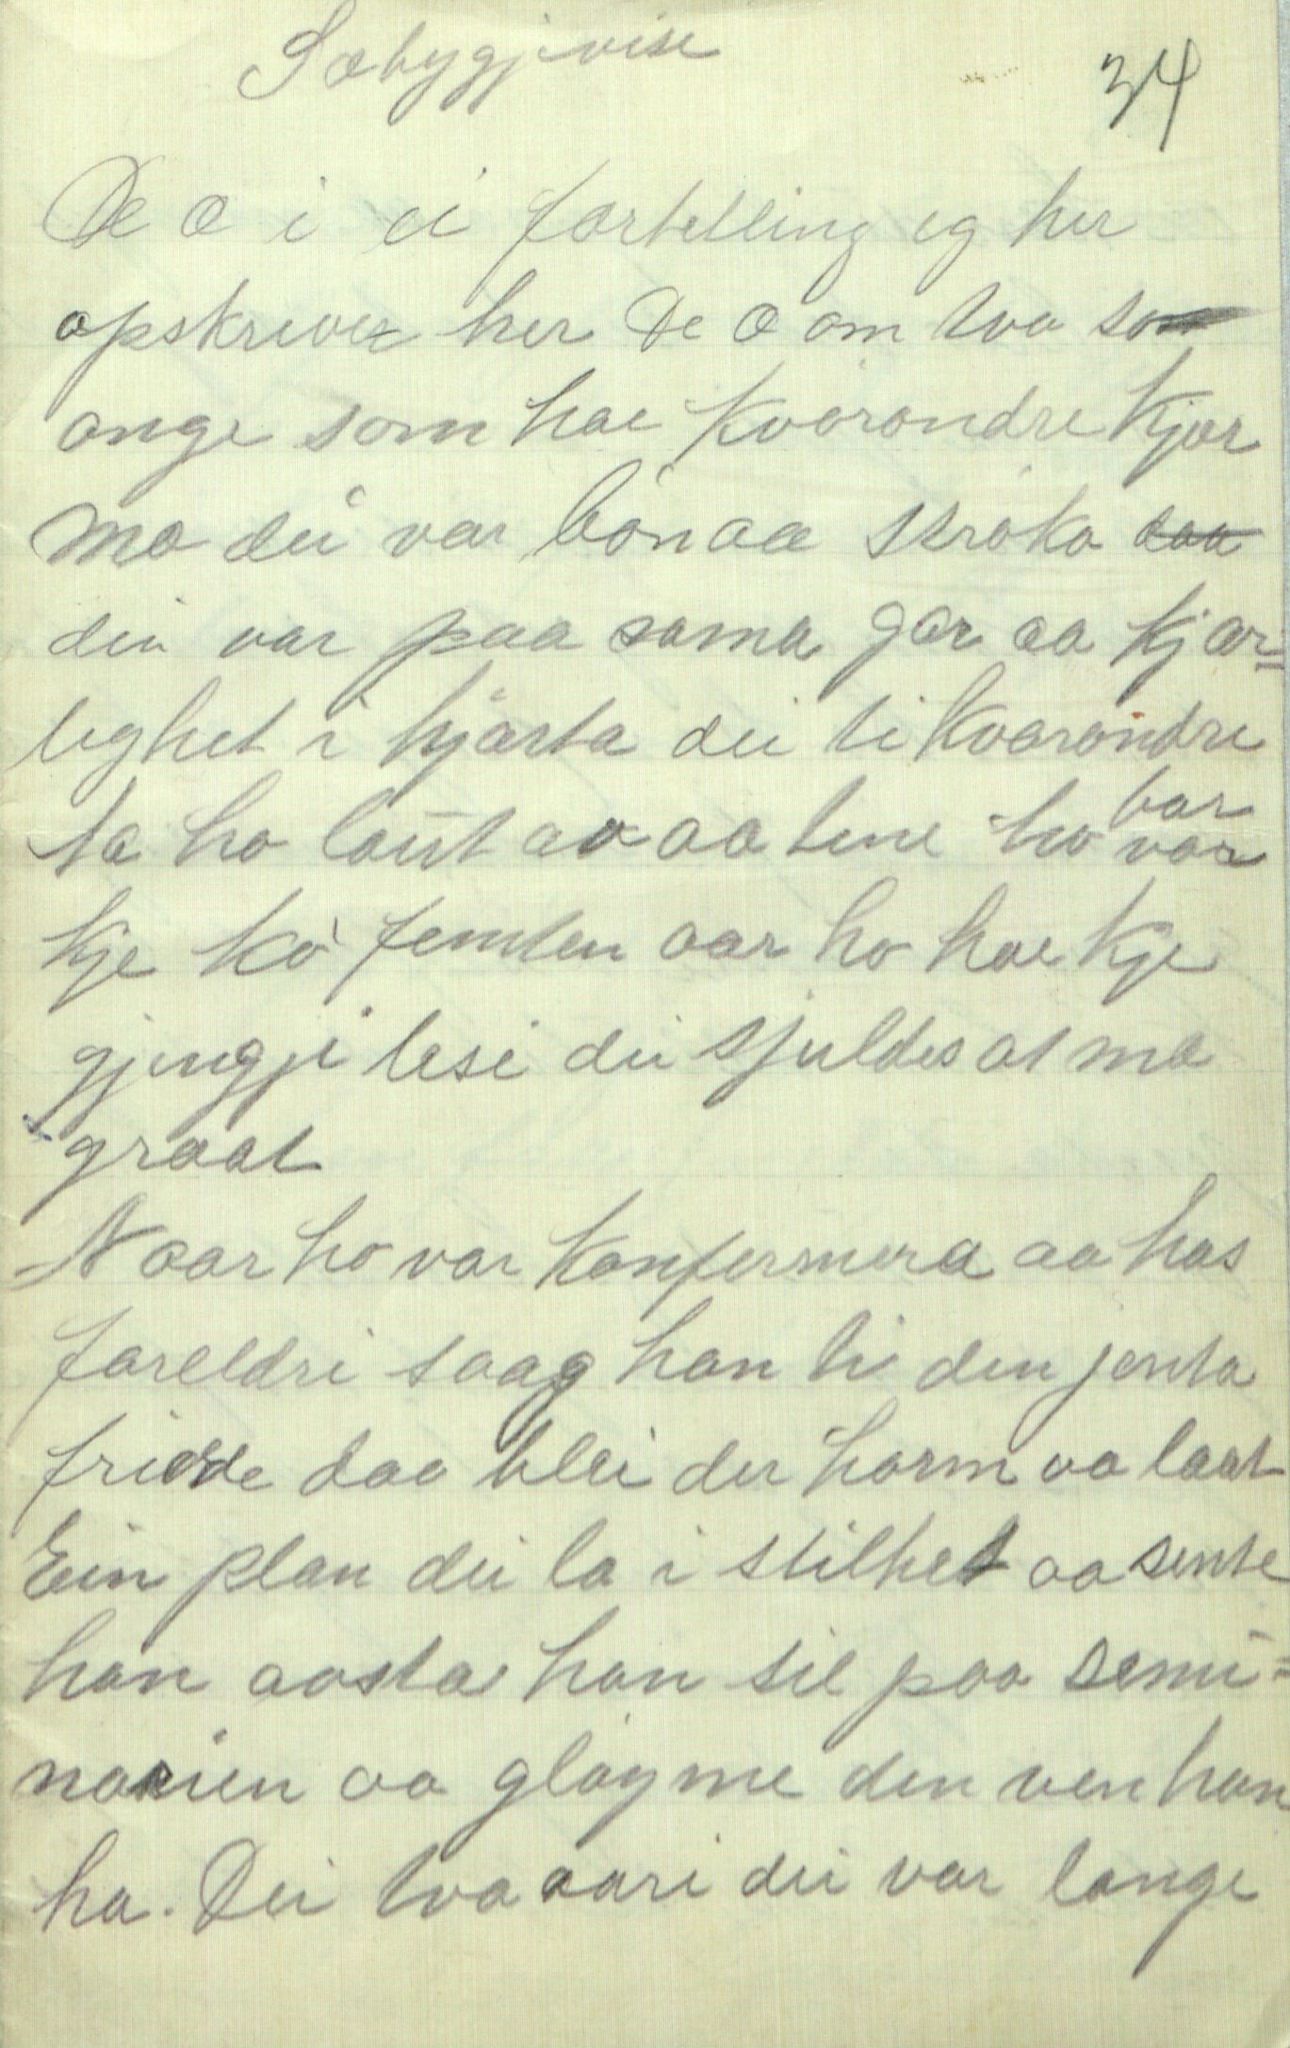 Sæbygjevise
34
De æ i ei fortelling eg her
opskrive her De æ om tvo so
onge som hae kvorondre kjær
Mo dei var bon aa stroka daa
dei var paa soma gar aa kjær=
leghet i hjarta dei ti kvorondre
Ta ho laut av aa tene ho var
bar
kje ko femten aar ho hae kje
gjengji lese dei sjuldes at mæ
graat
Naar ho var konfermera aa has
foreldri saag han ti den jenta
friede daa blei der harm aa laat
Ein plan dei la i stilhet aa sente
han aosta han sie paa semi=
narien aa gløyme den ven han
ha. Dei tvo aari dei var lange